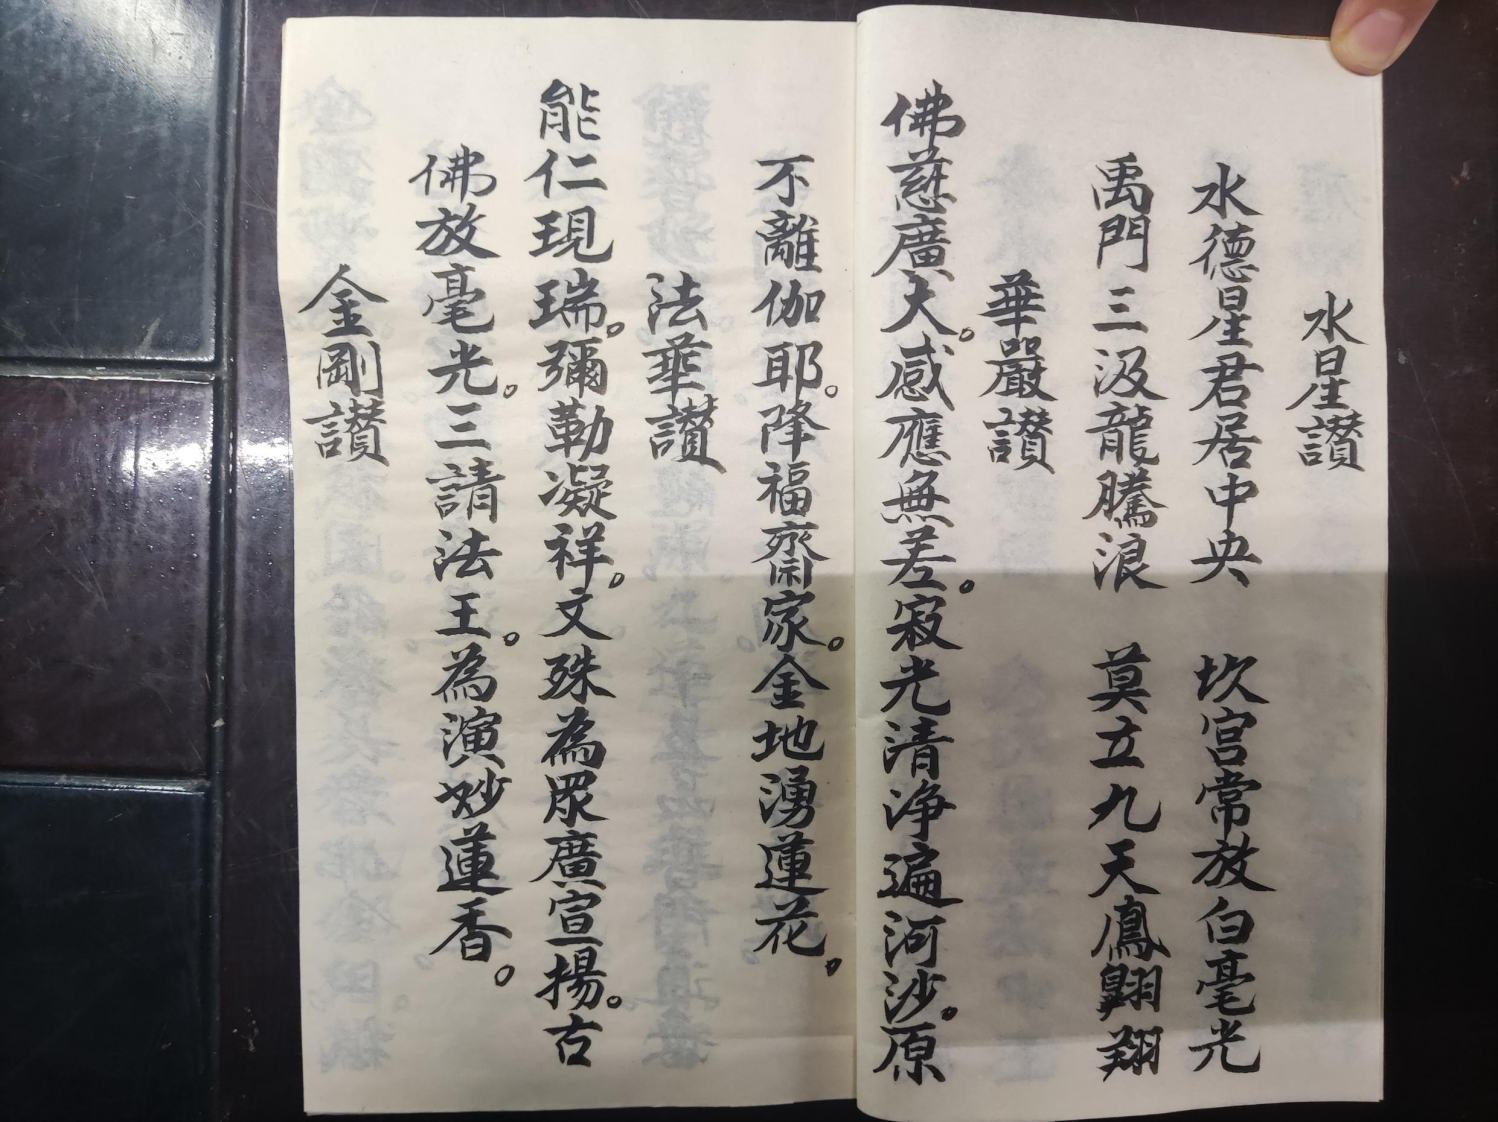 水星讃
水德星君居中央　坎宫常放白毫光
禹門三汲龍騰浪　莫立九天鳳翺翔
華嚴讃
佛慈廣大。感應無差。寂光清浄遍河沙。原
不離伽耶。降福齋家。金地湧蓮花。
法華讃
能仁現瑞。彌勒凝祥。文殊為眾廣宣揚。古
佛放毫光。三請法王。為演妙蓮香。
金剛讃